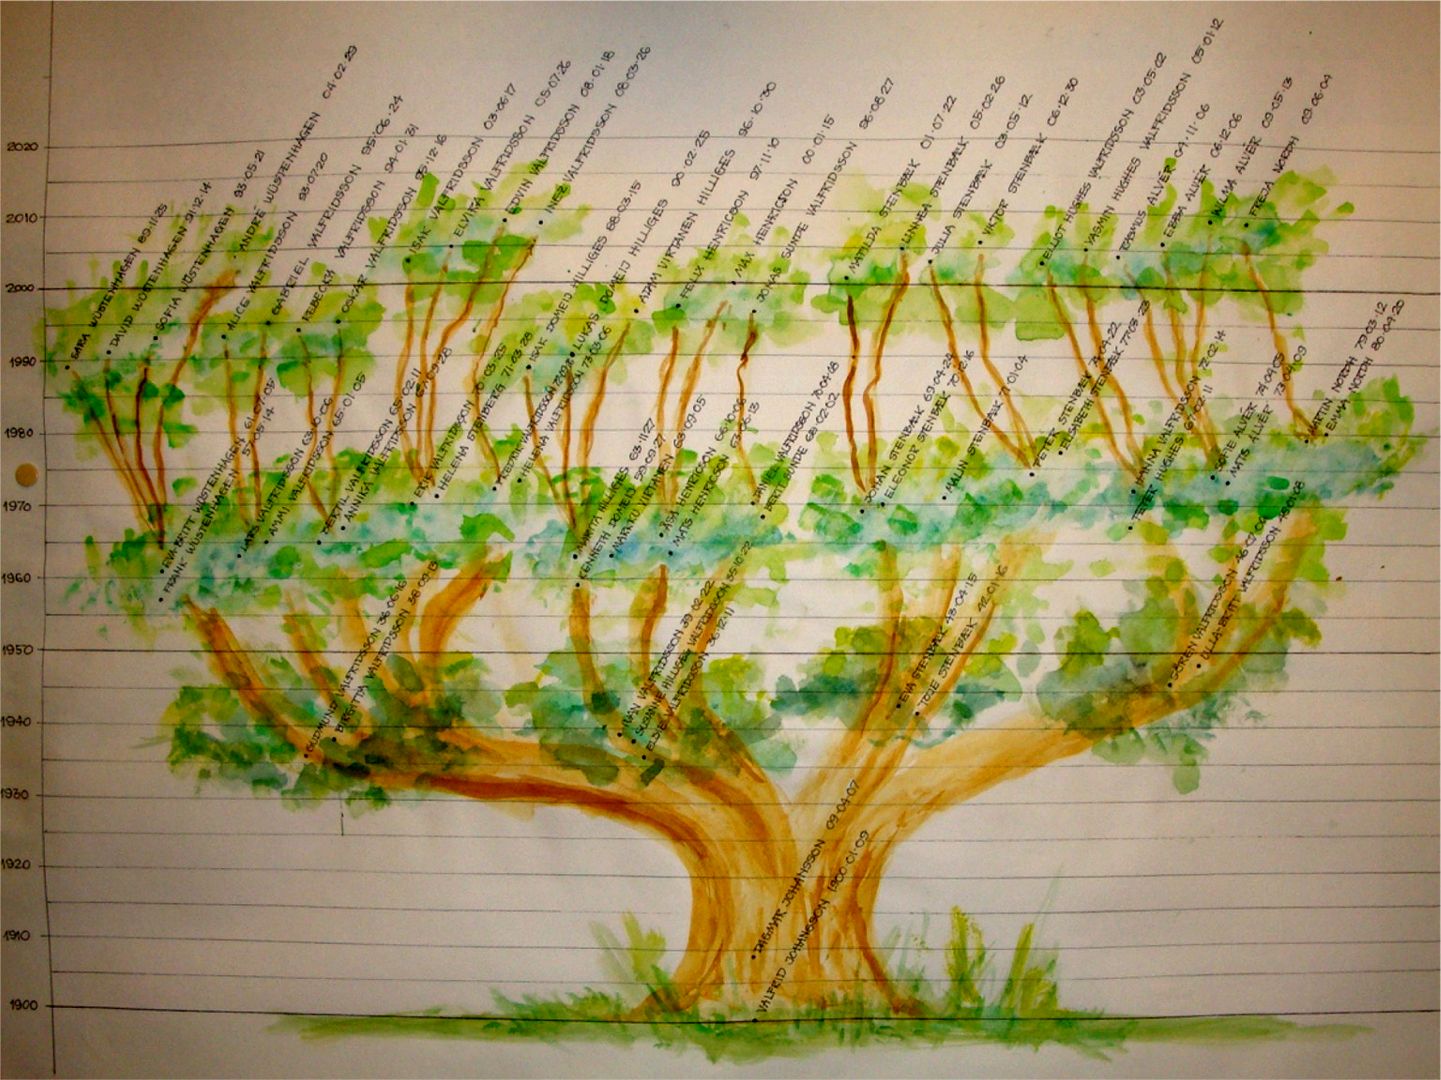 2020
2010
2000
1990
1980
1970
1960
1950
1940
1930
1920
1910
1900
SARA WÜSTENHAGEN 89·11·25
DAVID WÜSTENHAGEN 91·12·14
SOFIA WÜSTENHAGEN 93·05·21
ANDRÉ WÜSTENHAGEN 04·02·29
ALICE VALFRIDSSON 93·07·20
GABRIEL VALFRIDSSON 95·06·24
REBECKA VALFRIDSSON 94·01·31
OSKAR VALFRIDSSON 95·12·16
ISAK VALFRIDSSON 03·06·17
ELVIRA VALFRIDSSON 05·07·26
EDWIN VALFRIDSSON 08·01·18
INEZ VALFRIDSSON 08·03·26
ISAK DOMEIJ HILLIGES 88·03·15
LUKAS DOMEIJ HILLIGES 90·02·25
ADAM VIRTANEN HILLIGES 96·10·30
FELIX HENRICSON 97·11·10
MAX HENRICSON 00·01·15
JONAS SUNDE VALFRIDSSON 96·08·27
MATILDA STENBÆK 01·07·22
LINNEA STENBÆK 05·02·26
JULIA STENBÆK 03·05·12
VIKTOR STENBÆK 06·12·30
ELLIOT HUGHES VALFRIDSSON 03·05·02
YASMIN HUGHES VALFRIDSSON 05·01·12
RASMUS ALLVÉR 04·11·06
EBBA ALVÉR 06·12·06
WILMA ALVÉR 09·05·13
FREJA NORÉN 09·06·04
EVA-BRITT WÜSTENHAGEN 61·07·05
FRANK WÜSTENHAGEN 57·05·14
LARS VALFRIDSSON 63·10·06
ANNA VALFRIDSSON 65·01·05
BERTIL VALFRIDSSON 65·02·11
ANNIKA VALFRIDSSON 67·09·28
ERIK VALFRIDSSON 70·03·25
HELENA STENBERG 71·03·28
HELENA VALFRIDSSON 73·03·06
MARITA HILLIGES 63·11·27
KENNETH DOMEIJ 59·09·27
MARKKU VIRTANEN 63·09·05
ÅSA HENRICSON 66·10·06
MATS HENRICSON
DANIEL VALFRIDSSON 70·04·08
BERIT SUNDE 68·02·02
JOHAN STENBÆK 69·04·24
ELEONOR STENBÆK 70·12·16
MALIN STENBÆK 71·01·04
PETER STENBÆK 74·04·22
ELISABETH STENBÆK 77·05·23
ANNA VALFRIDSSON 72·02·14
PETER HUGHES 67·02·11
SOFIE ALVÉR 74·09·05
MATS ALVÉR 73·04·09
MARTIN NORÉN 79·03·12
EMMA NORÉN 80·09·20
GUDMUND VALFRIDSSON 36·06·16
BIRGITTA VALFRIDSSON 38·09·13
IVAN VALFRIDSSON 39·02·22
SUSANNE HILLIGES VALFRIDSSON 38·10·22
ELSIE VALFRIDSSON 36·12·11
EVA STENBÆK 43·04·15
TORE STENBÆK 42·01·16
SÖREN VALFRIDSSON 46·07·02
ULLA-BRITT VALFRIDSSON 48·09·08
DAGMAR JOHANSSON 09·04·07
VALFRID JOHANSSON 1900·01·09